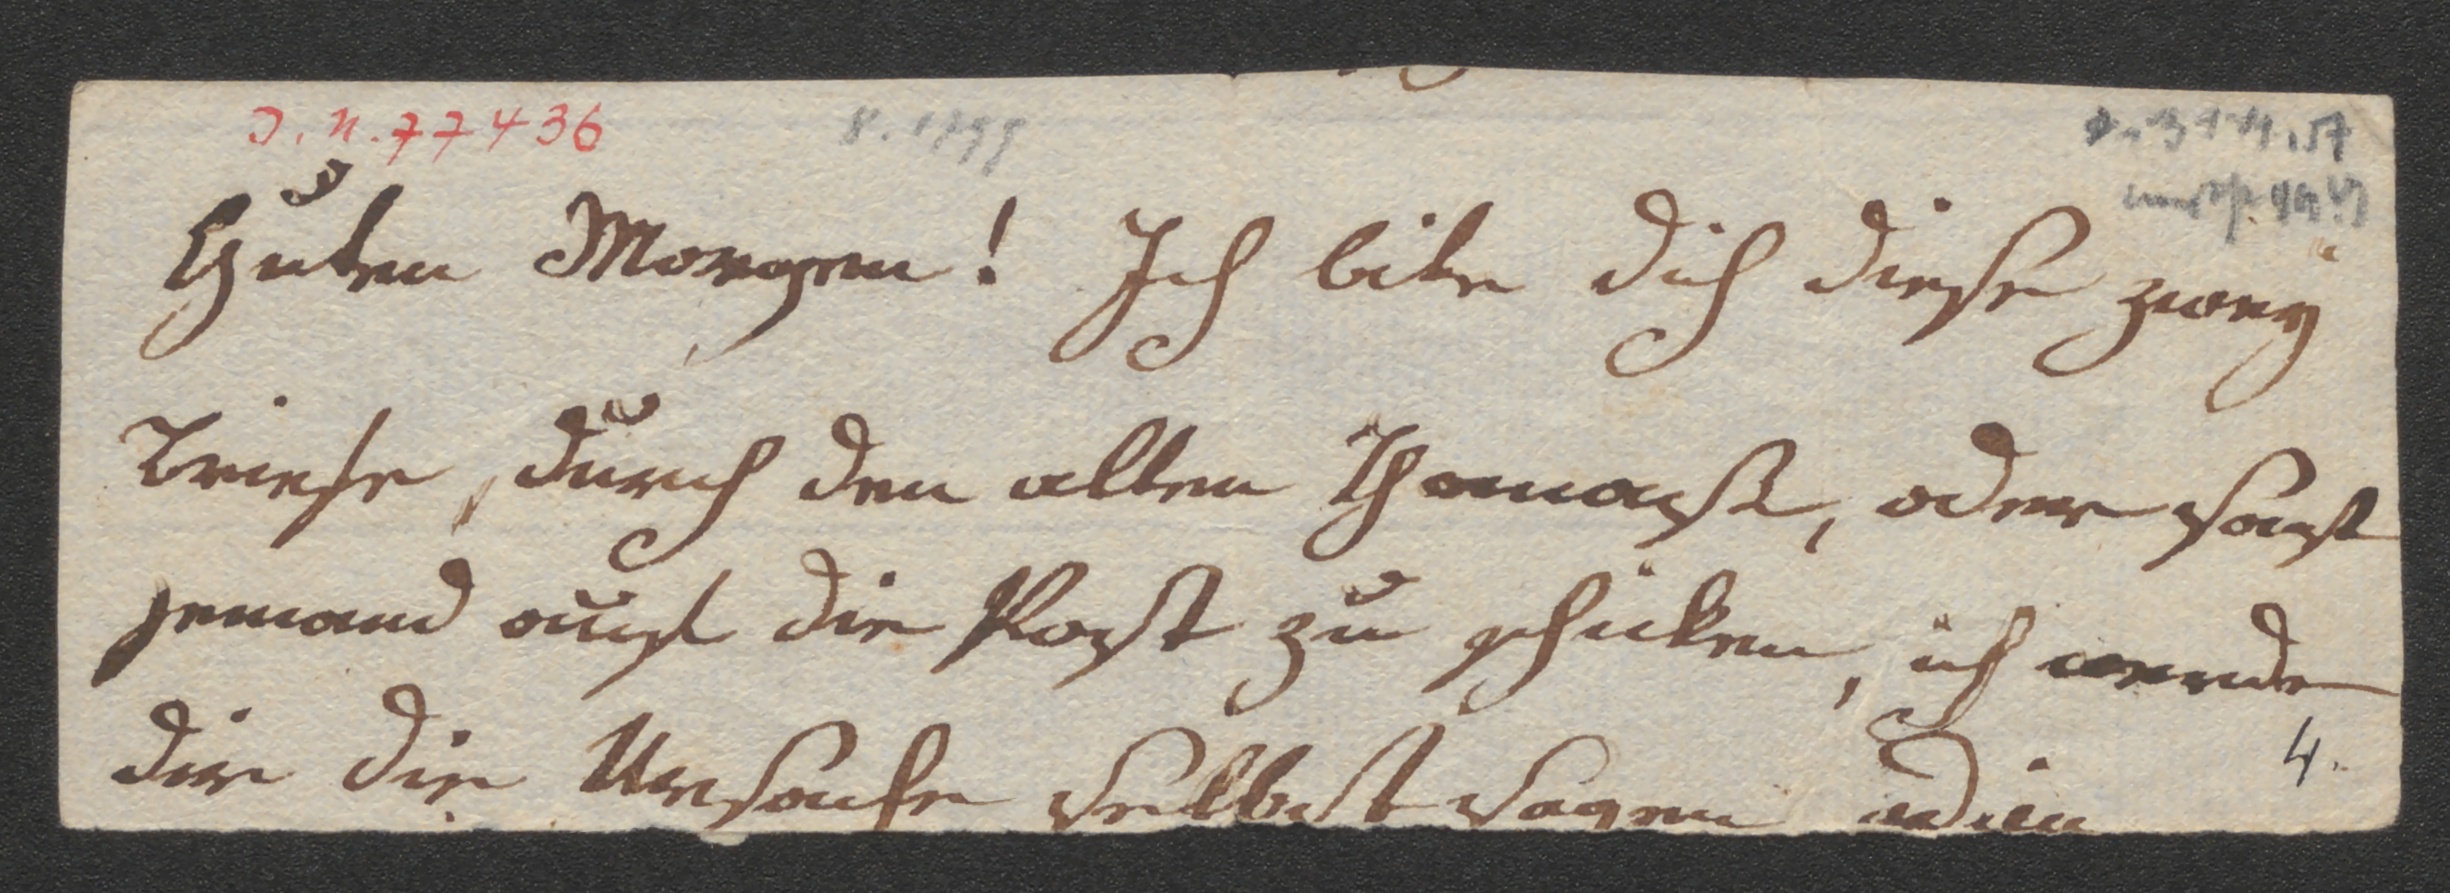 J. N. 77436
8. 1799
Guten Morgen! Ich bite dich diese zwey
Briefe, durch den alten Thomaß, oder sonst
jemand auf die Post zu schicken, ich werde
dir die Ursache selbst sagen adieu
4.